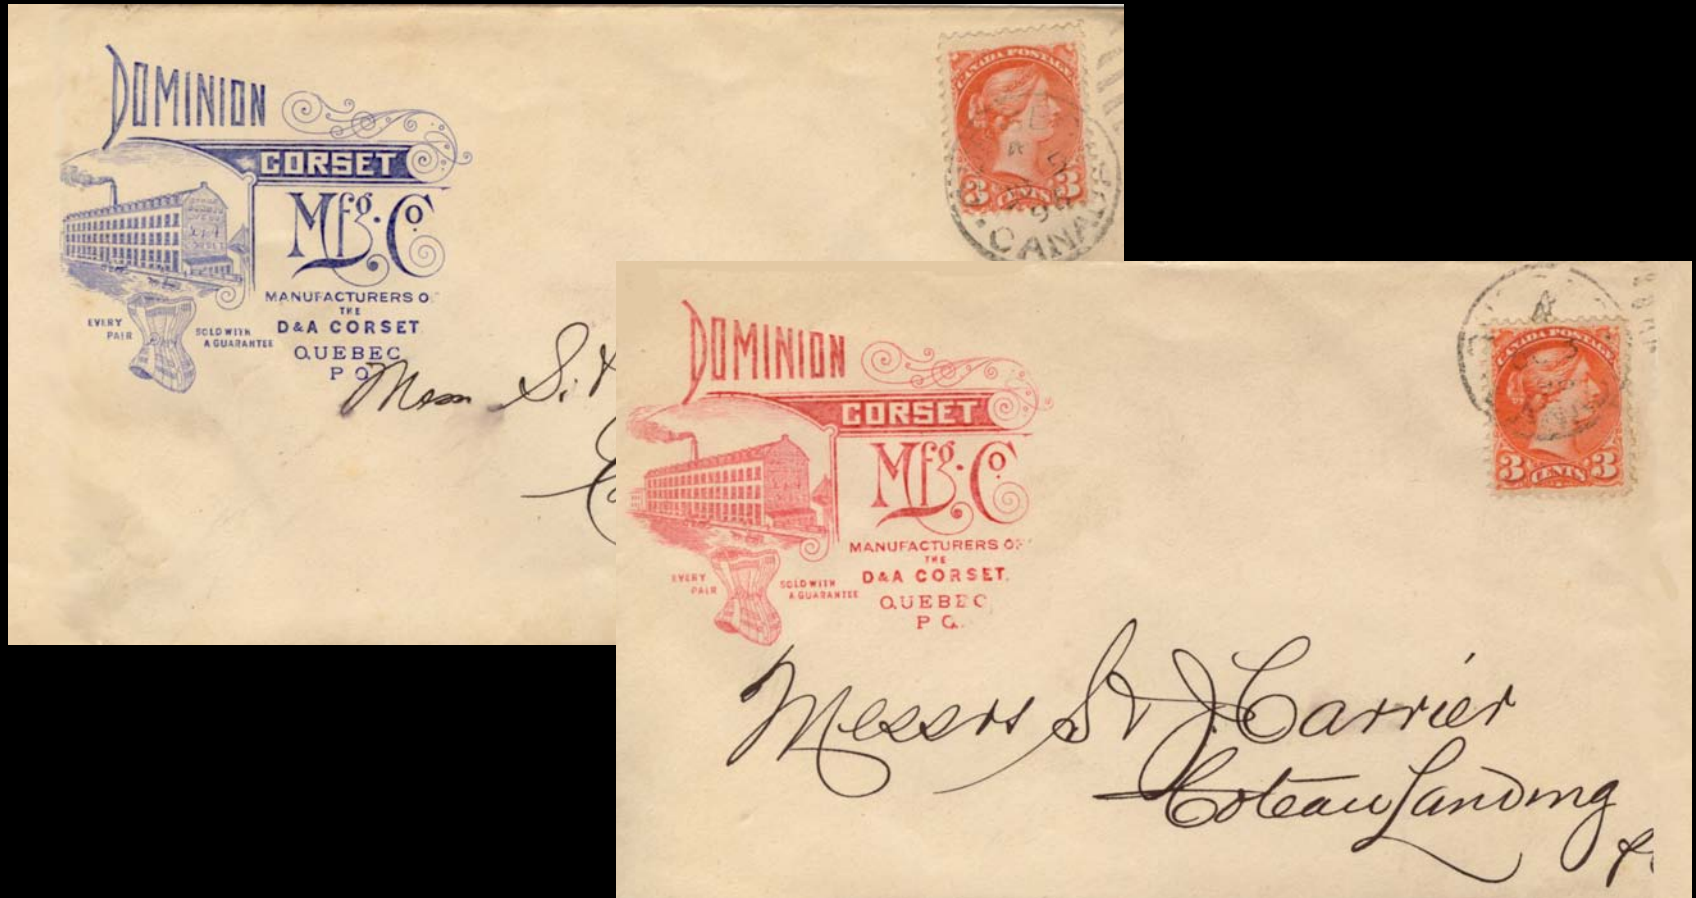 DOMINION
CORSET
Mfg. Co
MANUFACTURERS O
THE
D&A CORSET
QUEBEC
P Q
EVERY
PAIR
SOLD WITH
A GUARANTEE
CANADA POSTAGE
3 CENTS 3
CANADA
Mess S.
DOMINION
CORSET
Mfg. Co
MANUFACTURERS OF
THE
D&A CORSET.
QUEBEC,
P Q.
EVERY
PAIR
SOLD WITH
A GUARANTEE
CANADA POSTAGE
3 CENTS 3
Messrs St J. Carrier
Coteau Landing